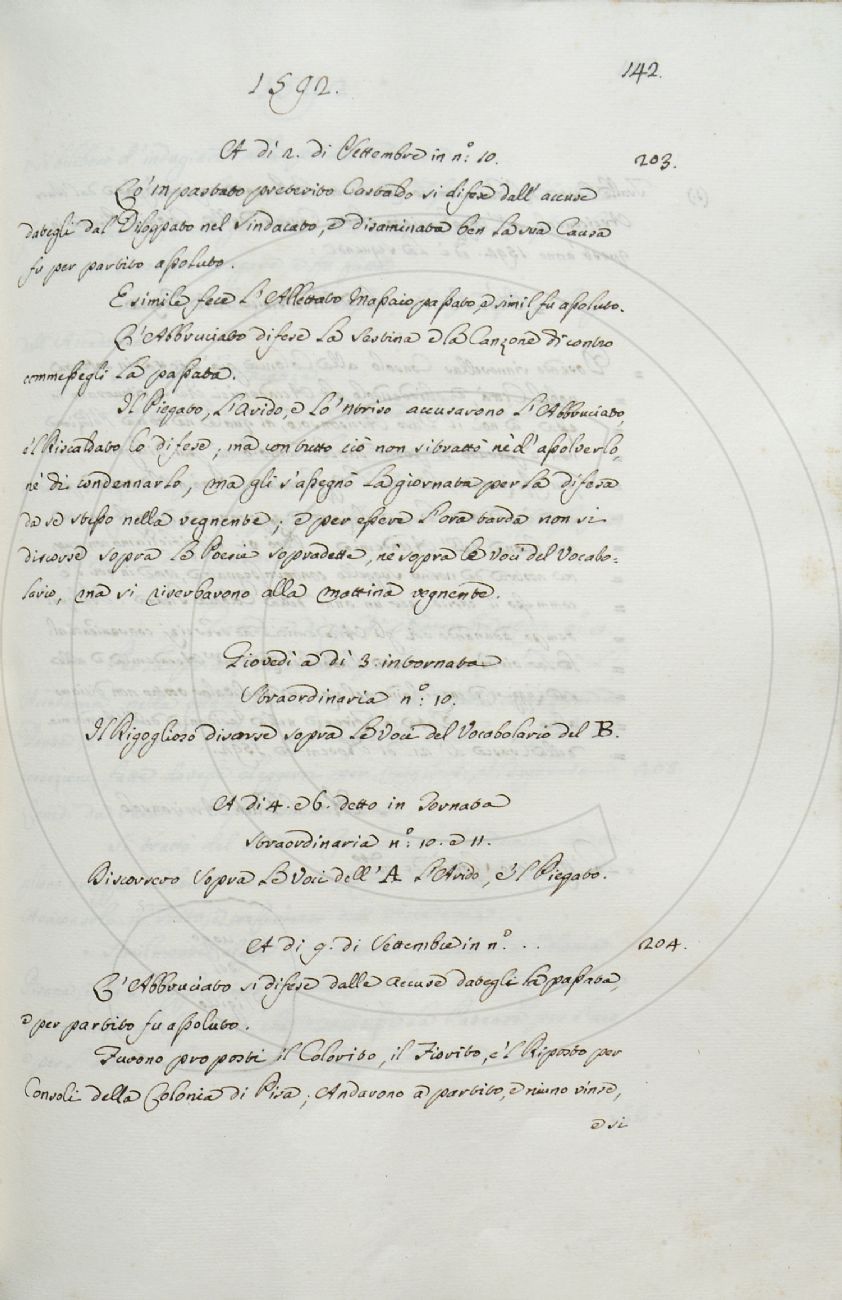 142.
1592.
A di 2. di Settembre in n.o 10.
203.
Lo 'mpastato preterito Castaldo si difese dall' accuse
dategli dal Dilappato nel sindacato, e disaminata ben la sua Causa
fu per partito assoluto.
E simile fece l'Allettato Massaio passato, e simil fu assoluto.
L'Abbruciato difese la Sestina e la Canzone di contro
commessegli la passata.
Il Piegato, l'Arido, e lo 'ntriso accusarono l'Abbruciato,
e 'l Riscaldato lo difese, ma con tutto ciò non si trattò nè d' assolverlo,
nè di condennarlo, ma gli s'assegnò la giornata per la difesa
da se stesso nella vegnente; e per essere l'ora tarda non si
discorse sopra le Poesie sopradette, nè sopra le Voci del Vocabo=
lario, ma si riserbarono alla mattina vegnente.
Giovedi a di 3. in tornata
Straordinaria n.o 10.
Il Rigoglioso discorse sopra le Voci del Vocabolario del B.
A di 4. e 6. detto in Tornata
straordinaria n.o 10. e 11.
Discorsero sopra le Voci dell' A l'Arido, e 'l Piegato.
A di 9. di Settembre in n.o . .
204.
L'Abbruciato si difese dalle accuse dategli la passata,
e per partito fu assoluto.
Furono proposti il Colorito, il Fiorito, e 'l Riposto per
Consoli della Colonia di Pisa; Andarono a partito, e niuno vinse,
e si